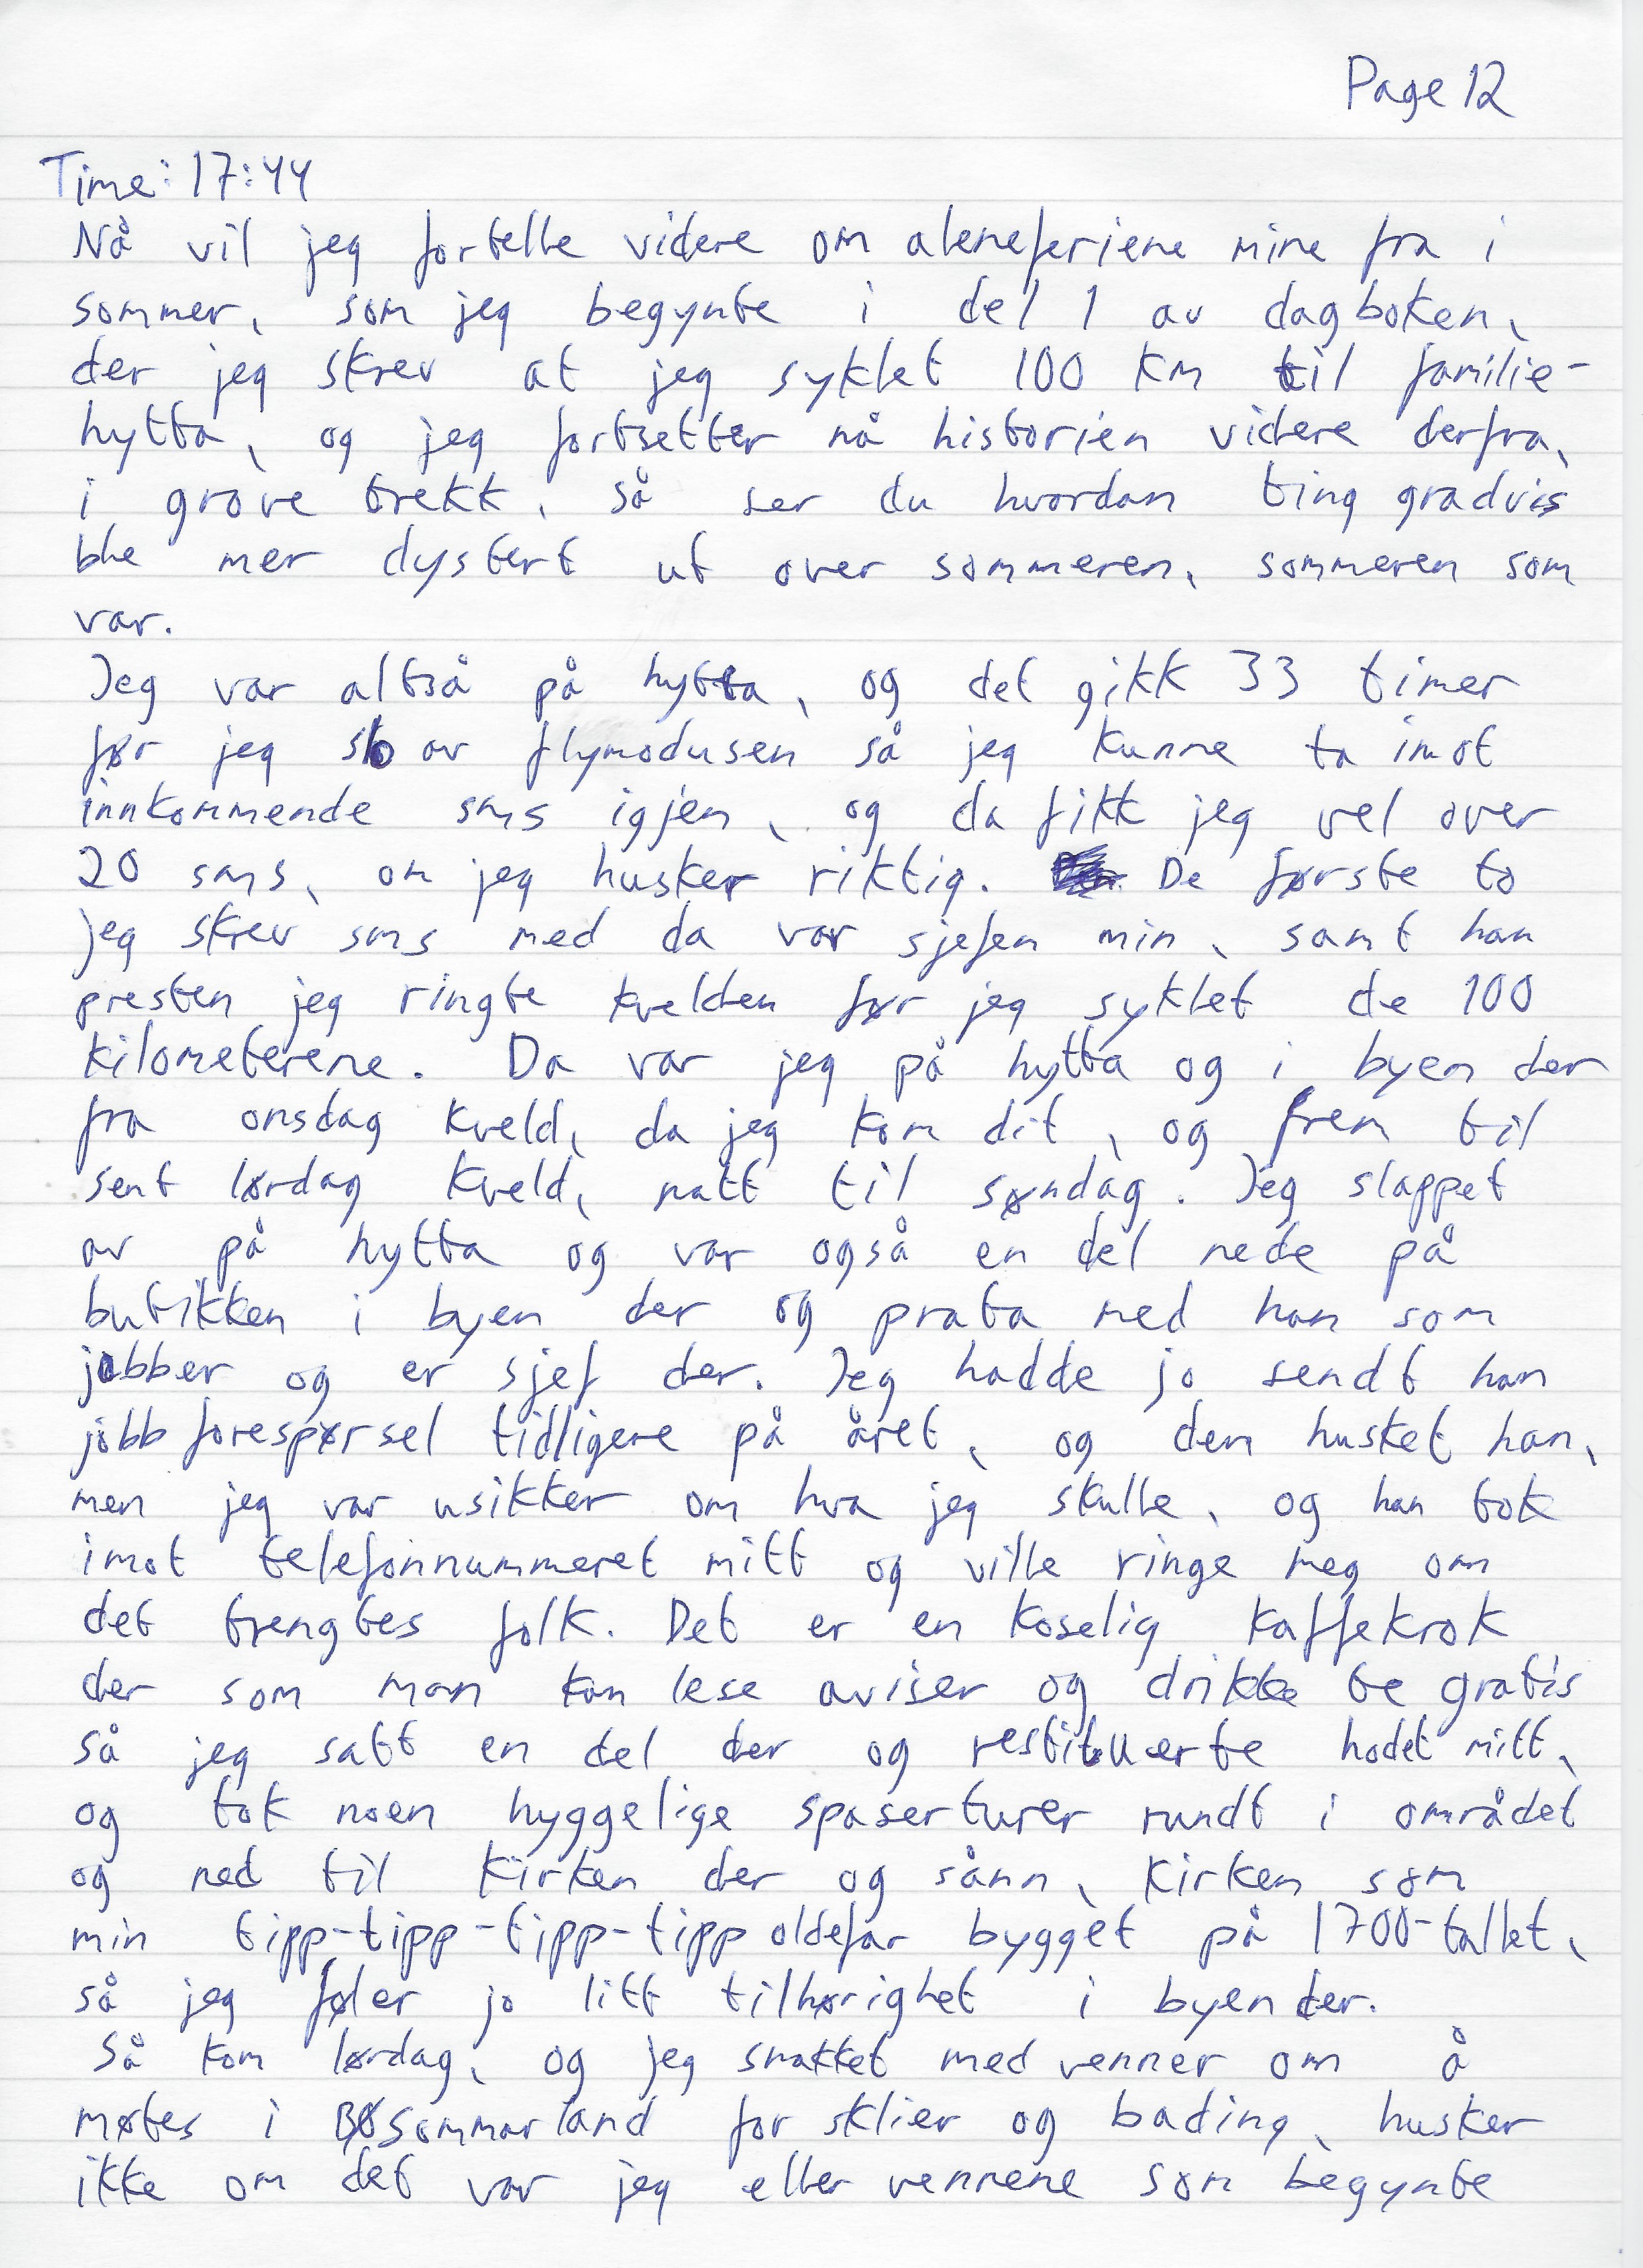 Page 12
Time: 17:44
Nå vil jeg fortelle videre om aleneferiene mine fra i
sommer, som jeg begynte i del 1 av dagboken,
der jeg skrev at jeg syklet 100 km til familie-
hytta, og jeg fortsetter nå historien videre derfra,
i grove trekk, så ser du hvordan ting gradvis
ble mer dystert ut over sommeren, sommeren som
var.
Jeg var altså på hytta, og det gikk 33 timer
før jeg slo av flymodusen så jeg kunne ta imot
innkommende sms igjen, og da fikk jeg vel over
20 sms, om jeg husker riktig. De første to
jeg skrev sms med da var sjefen min, samt han
presten jeg ringte kvelden før jeg syklet de 100
kilometerene. Da var jeg på hytta og i byen der
fra onsdag kveld, da jeg kom dit, og frem til
sent lørdag kveld, natt til søndag. Jeg slappet
av på hytta og var også en del nede på
butikken i byen der og prata med han som
jobber og er sjef der. Jeg hadde jo sendt han
jobbforespørsel tidligere på året, og den husket han,
men jeg var usikker om hva jeg skulle, og han tok
imot telefonnummeret mitt og ville ringe meg om
det trengtes folk. Det er en koselig kaffekrok
der som man kan lese aviser og drikke te gratis
så jeg satt en del der og restituerte hodet mitt,
og tok noen hyggelige spaserturer rundt i området
og ned til kirken der og sånn, kirken som
min tipp-tipp-tipp-tipp oldefar bygget på 1700-tallet,
så jeg føler jo litt tilhørighet i byen der.
Så kom lørdag, og jeg snakket med venner om å
møtes i BØSommarland for sklier og bading, husker
ikke om det var jeg eller vennene som begynte